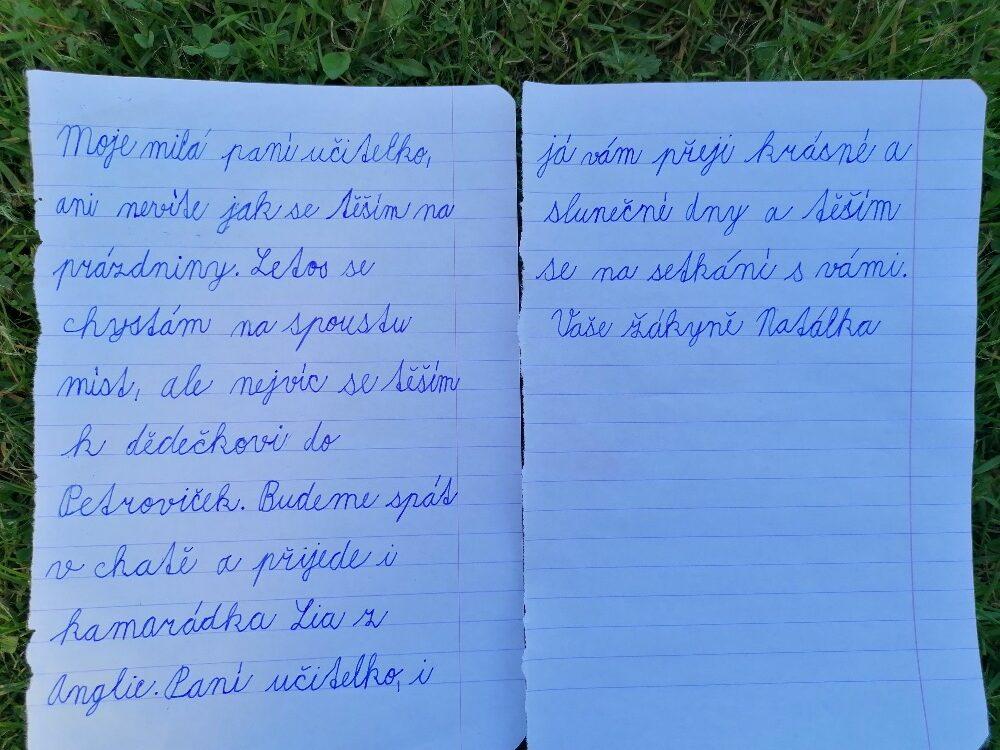 Moje milá paní učitelko,
ani nevíte jak se těším na
prázdniny. Letos se
chystám na spoustu
míst, ale nejvíc se těším
k dědečkovi do
Petroviček. Budeme spát
v chatě a přijede i
kamarádka Lia z
Anglie. Paní učitelko, i
já vám přeji krásné a
slunečné dny a těším
se na setkání s vámi.
Vaše žákyně Natálka